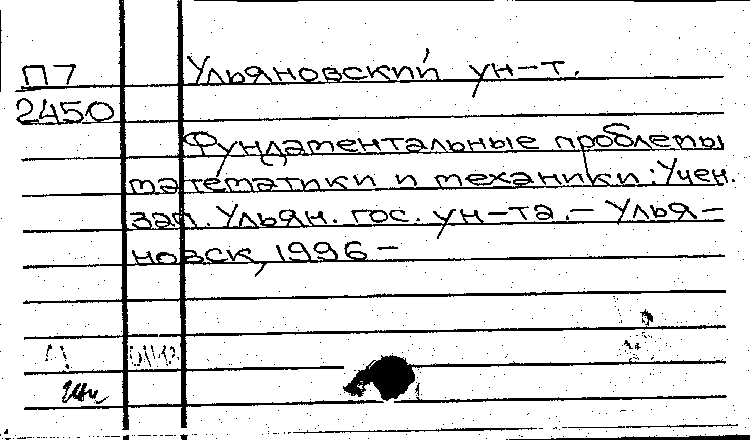 П7 Ульяновский ун-т.
2450
Фундаментальные проблемы
математики и механики: Учен.
зап. Ульян. гос. ун-та. – Улья-
новск, 1996 –